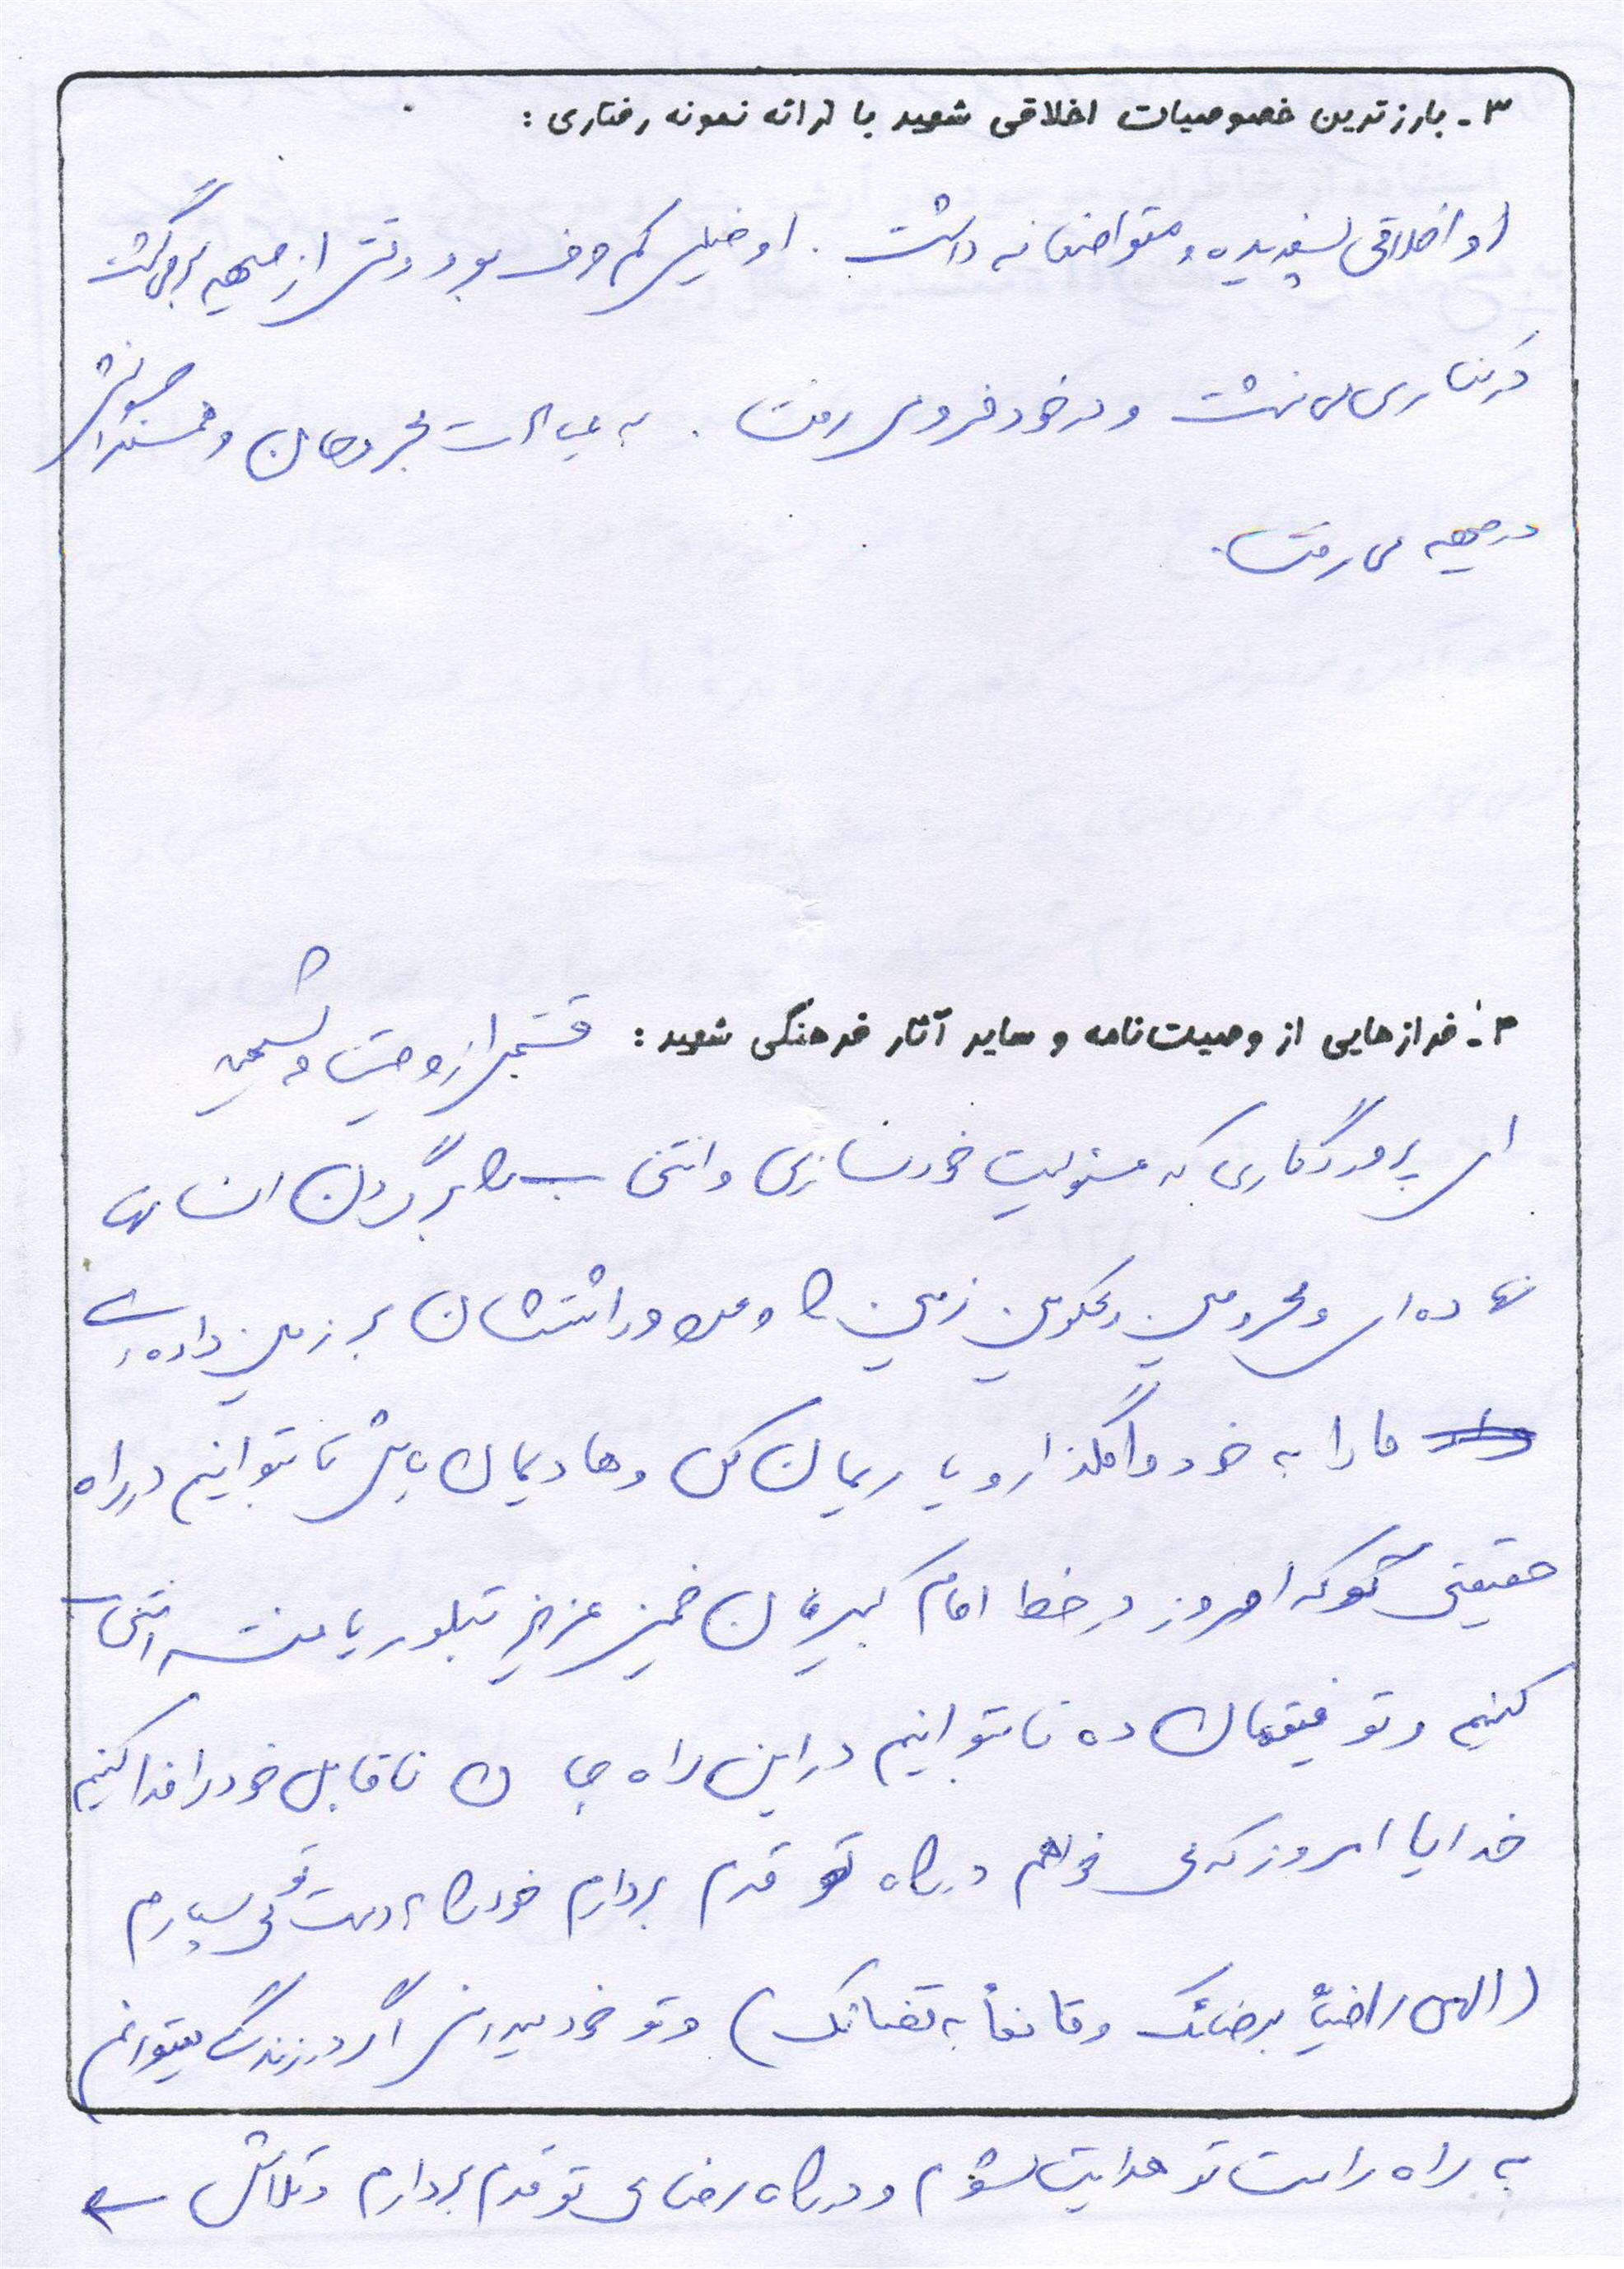 ۳- بارزترین خصوصیات اخلاقی شهید با ارائه نمونه رفتاری :
او اخلاقی پسندیده و متواضعانه داشت . او خیلی کم حرف بود وقتی از جبهه برمی‌گشت
در کناری می نشست و در خود فرو می رفت . به عیادت مجروحان و همسنگرانش
در جبهه می رفت .
۴- فرازهایی از وصیت‌نامه و سایر آثار فرهنگی شهید : قسمتی از وصیت
ای پروردگاری که مسئولیت خودسازی و انتخاب را بر گردن انسان
نهاده‌ای و محرومین و محکومین زمین را وعده وراثتشان بر زمین داده‌ای
ما را به خود وامگذار و یاریمان کن و هادیمان باش تا بتوانیم در راه
حقیقی تو که امروز در خط امام کبیرمان خمینی عزیز تبلور یافته انتخاب
کنیم و توفیقمان ده تا بتوانیم در این راه جان ناقابل خود را فدا کنیم
خدایا امروز که می خواهم در راه تو قدم بردارم خود را به دست تو می سپارم
(الهی راضیاً برضائک و قانعاً به قضائک) و تو خود میدانی اگر در زندگی میتوانم
به راه راست تو هدایت شوم و در راه رضای تو قدم بردارم و تلاش ←